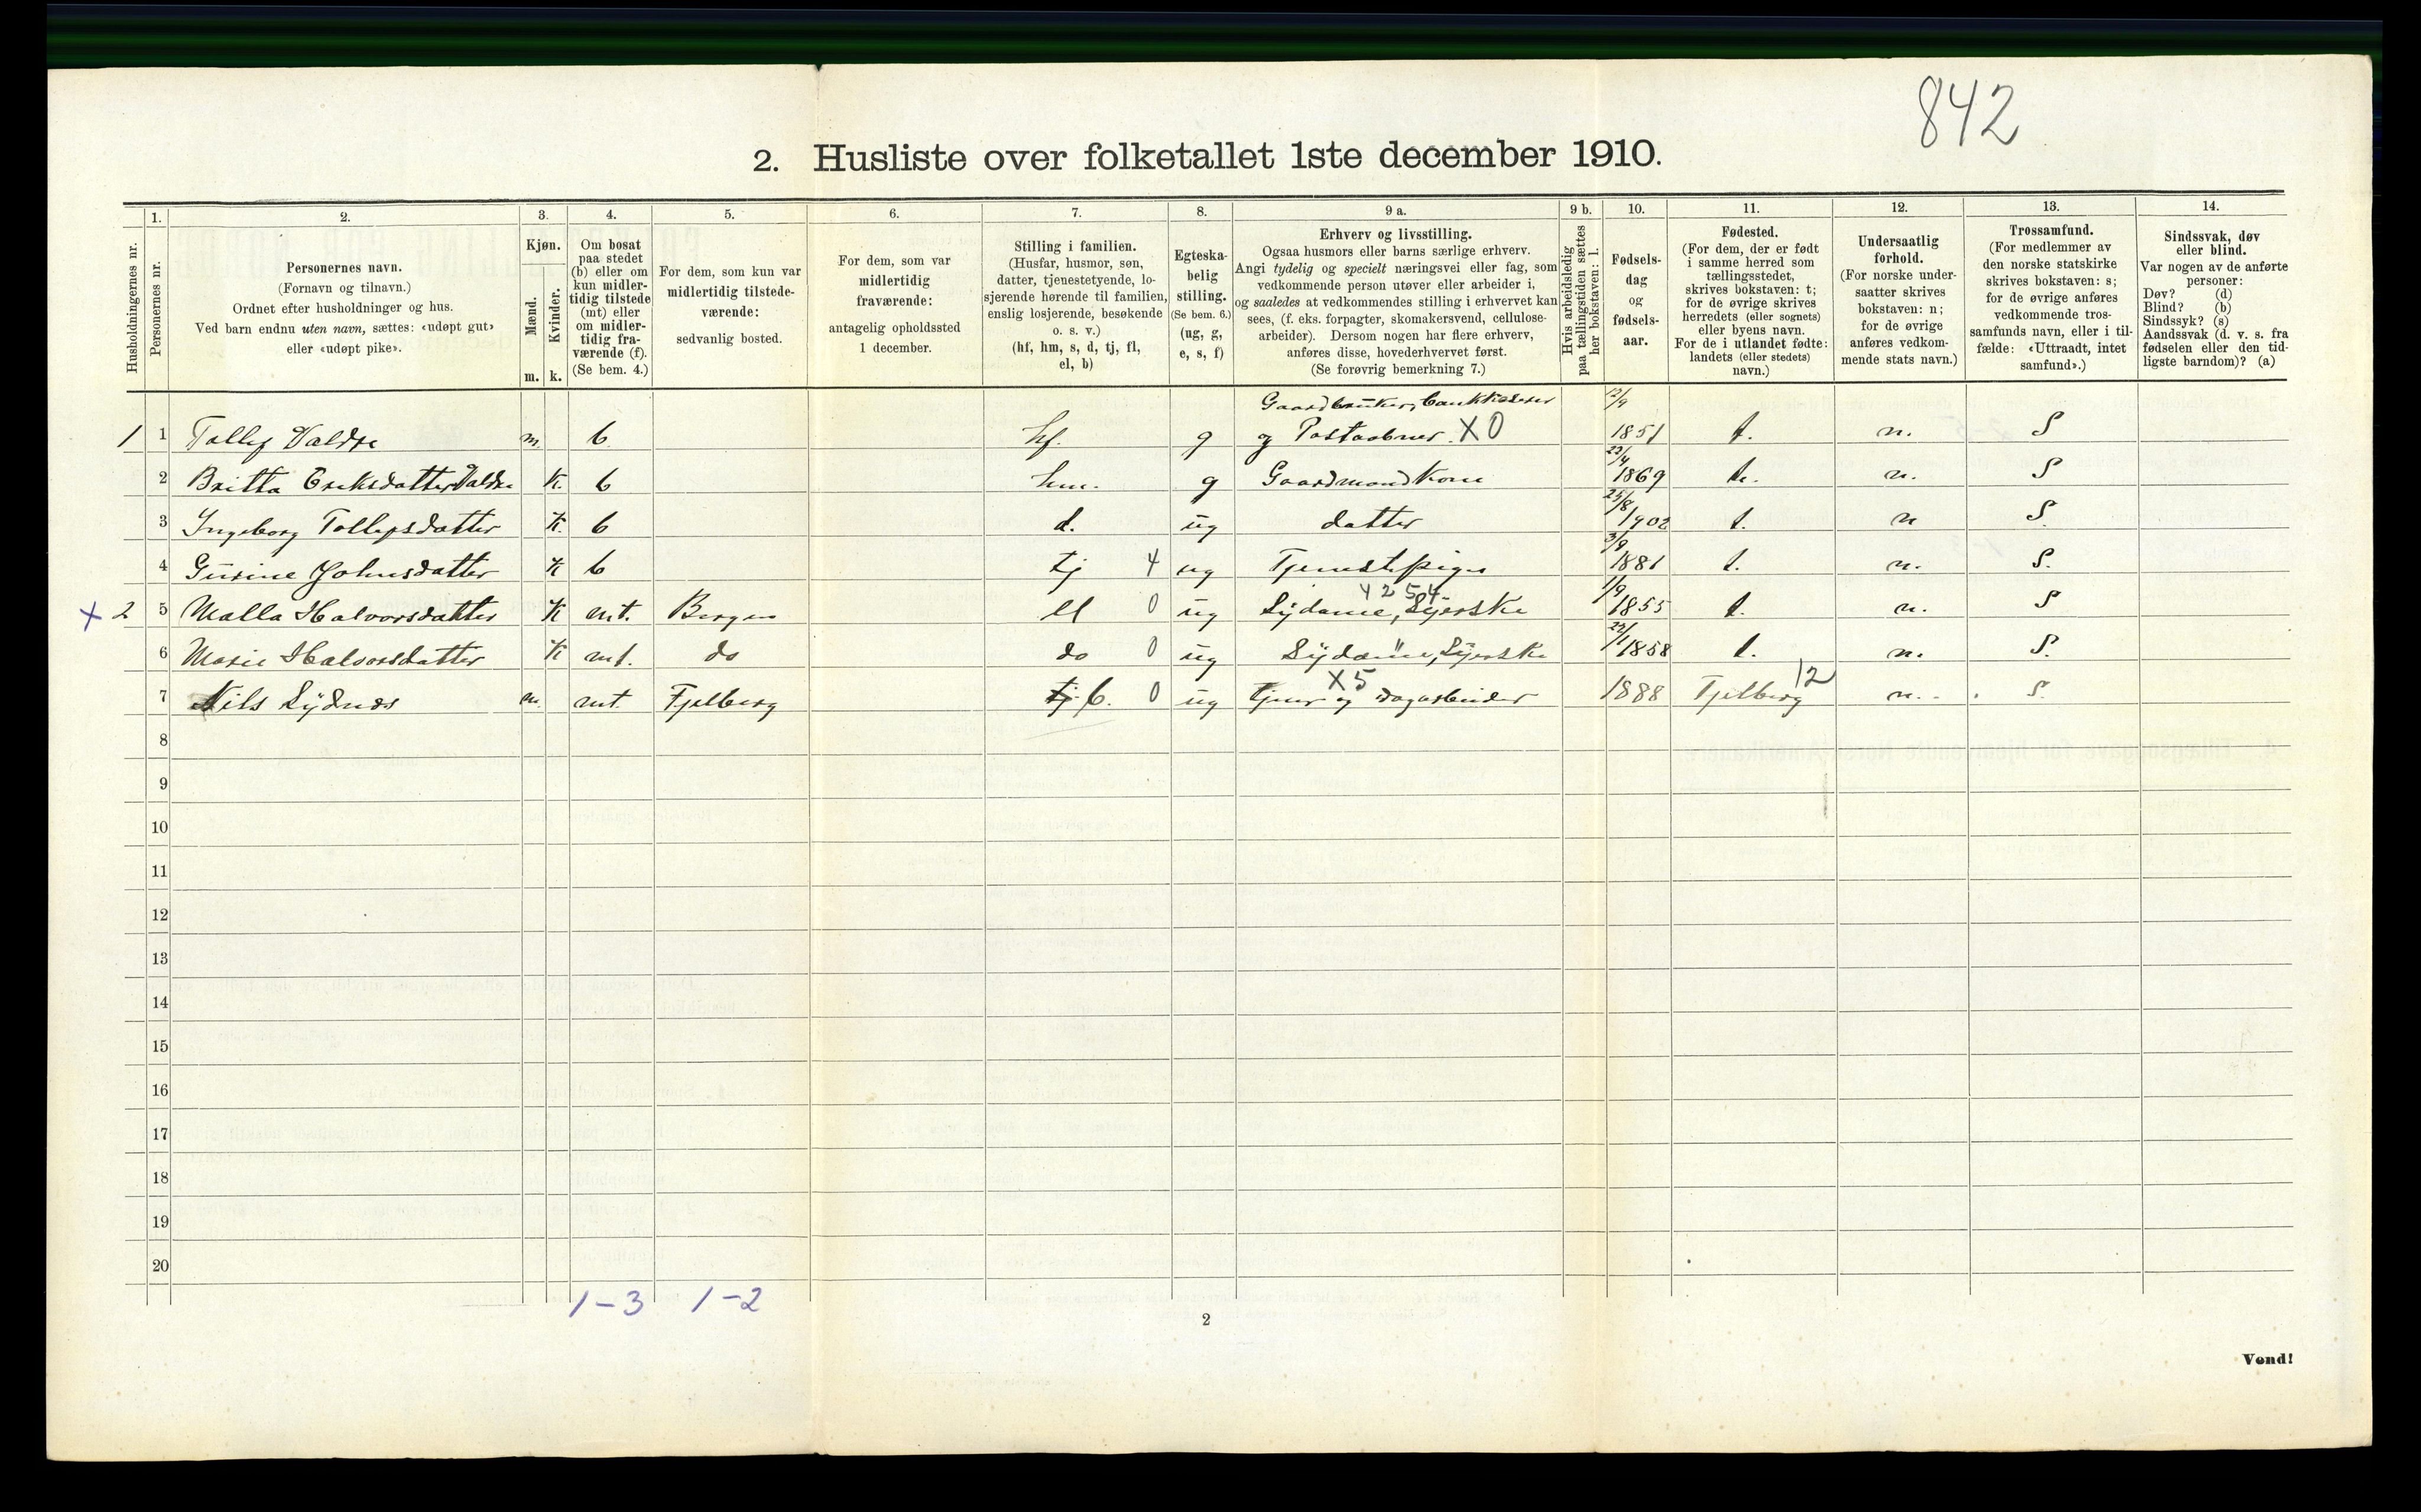 842
2. Husliste over folketallet 1ste december 1910.
Husholdningernes nr.
1.
Personernes nr.
2.
Personernes navn.
(Fornavn og tilnavn.)
Ordnet efter husholdninger og hus.
Ved barn endnu uten navn, sættes: «udøpt gut»
eller «udøpt pike».
3.
Kjøn.
Mænd.
Kvinder.
m. k.
4.
Om bosat
paa stedet
(b) eller om
kun midler-
tidig tilstede
(mt) eller
om midler-
tidig fra-
værende (f).
(Se bem. 4.)
5.
For dem, som kun var
midlertidig tilstede-
værende:
sedvanlig bosted.
6.
For dem, som var
midlertidig
fraværende:
antagelig opholdssted
1 december.
7.
Stilling i familien.
(Husfar, husmor, søn,
datter, tjenestetyende, lo-
sjerende hørende til familien,
enslig losjerende, besøkende
o. s. v.)
(hf, hm, s, d, tj, fl,
el, b)
8.
Egteska-
belig
stilling.
(Se bem. 6.)
(ug, g,
e, s, f)
9 a.
Erhverv og livsstilling.
Ogsaa husmors eller barns særlige erhverv.
Angi tydelig og specielt næringsvei eller fag, som
vedkommende person utøver eller arbeider i,
og saaledes at vedkommendes stilling i erhvervet kan
sees, (f. eks. forpagter, skomakersvend, cellulose-
arbeider). Dersom nogen har flere erhverv,
anføres disse, hovederhvervet først.
(Se forøvrig bemerkning 7.)
9 b.
Hvis arbeidsledig
paa tællingstiden sættes
her bokstaven: l.
10.
Fødsels-
dag
og
fødsels-
aar.
11.
Fødested.
(For dem, der er født
i samme herred som
tællingsstedet,
skrives bokstaven: t;
for de øvrige skrives
herredets (eller sognets)
eller byens navn.
For de i utlandet fødte:
landets (eller stedets)
navn.)
12.
Undersaatlig
forhold.
(For norske under-
saatter skrives
bokstaven: n;
for de øvrige
anføres vedkom-
mende stats navn.)
13.
Trossamfund.
(For medlemmer av
den norske statskirke
skrives bokstaven: s;
for de øvrige anføres
vedkommende tros-
samfunds navn, eller i til-
fælde: «Uttraadt, intet
samfund».)
14.
Sindssvak, døv
eller blind.
Var nogen av de anførte
personer:
Døv? (d)
Blind? (b)
Sindssyk? (s)
Aandssvak (d. v. s. fra
fødselen eller den tid-
ligste barndom)? (a)
Gaardbruker, bankkaserer 12/9
1 1 Tollef Valdre m. b hf. g og Postaabner. X0 1851 t. n. S
2 Britta Eriksdatter Valdre K. b hm. g Gaardmandkone 22/4 1869 t. n. S
3 Ingeborg Tollefsdatter K. b d. ug datter 25/8 1902 t. n S.
4 Gurine Johnsdatter K b tj 4 ug Tjenestepige 3/9 1881 t. n. S.
4254
X 2 5 Malla Halvorsdatter K mt. Bergen el 0 ug Sydame, Syerske 1/9 1855 t. n. S
6 Marie Halvorsdatter K mt. do do 0 ug Sydame, Syerske 22/1 1858 t. n. S.
X5 12
7 Nils Sydnes m. mt. Fjelberg tj b. 0 ug tjener og dagarbeider 1888 Fjelberg n. S.
8
9
10
11
12
13
14
15
16
17
18
19
20
1-3 1-2
2
Vend!